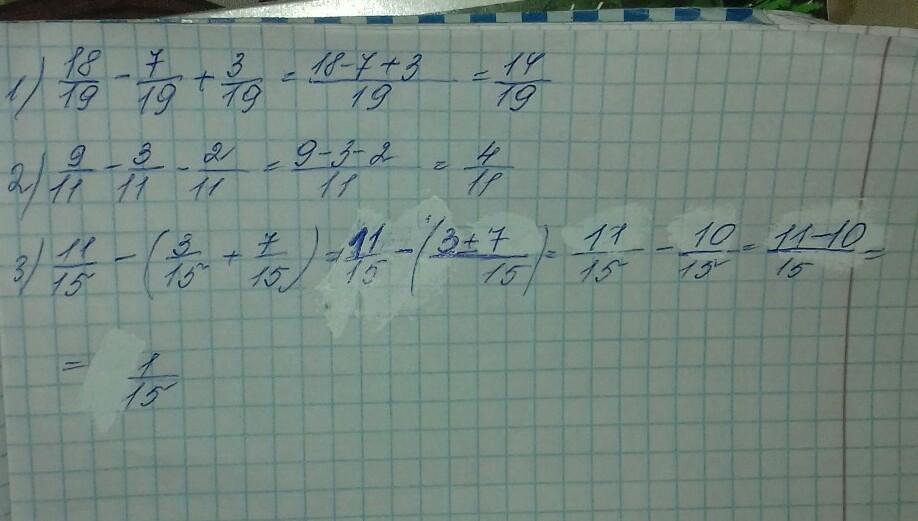 1) 18/19 - 7/19 + 3/19 = (18-7+3)/19 = 14/19
2) 9/11 - 3/11 - 2/11 = (9-3-2)/11 = 4/11
3) 11/15 - (3/15 + 7/15) = 11/15 - (3+7/15) = 11/15 - 10/15 = (11-10)/15 =
= 1/15